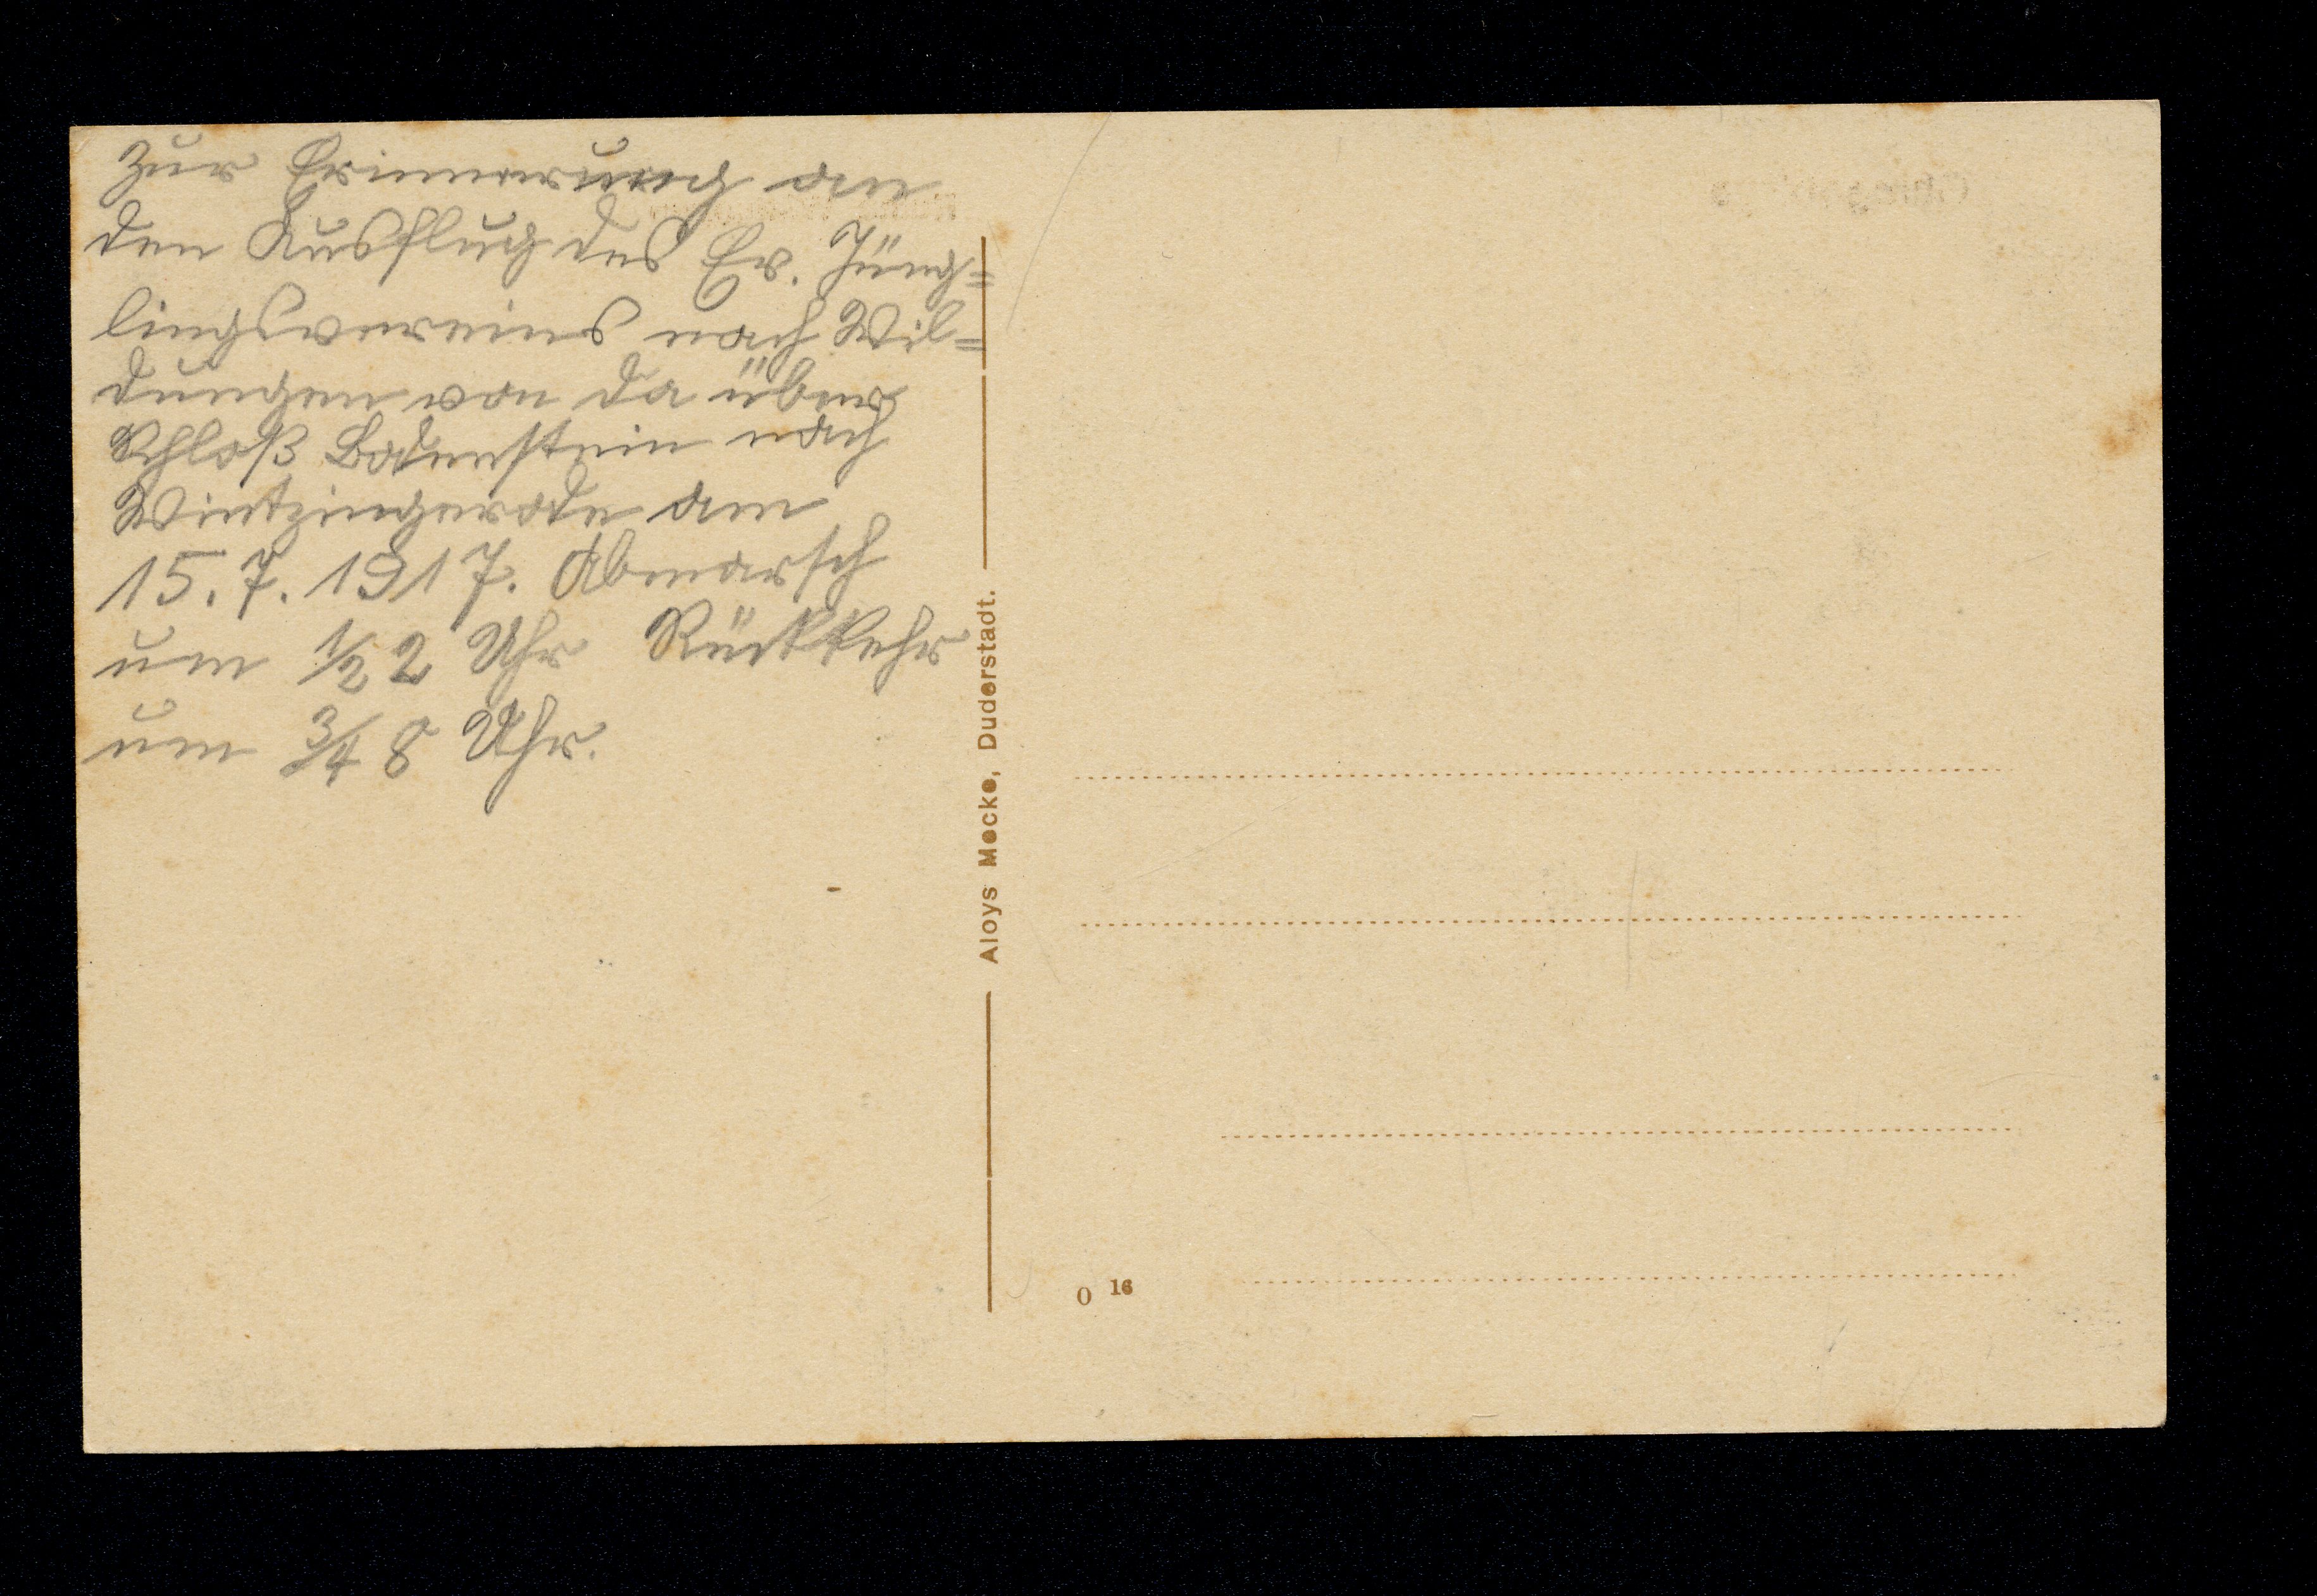 Zur Erinnerung an
den Ausflug des Ev. Jüng=
lingsvereins nach Wil=
dungen von da über
Schloß Bodenstein nach
Wintzingerode am
15.7.1917. Abmarsch
um 1/2 2 Uhr Rückkehr
um 3/4 8 Uhr.
Aloys Mecke, Duderstadt.
O 16